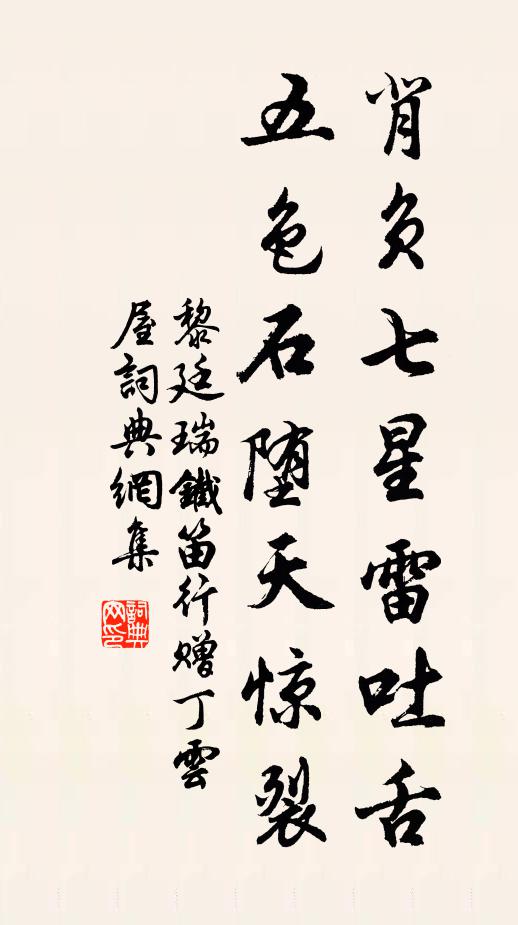 背负七星雷吐舌
五色石堕天惊裂
黎廷瑞鐵笛行赠丁雲
屋詞典網集
詞典网印